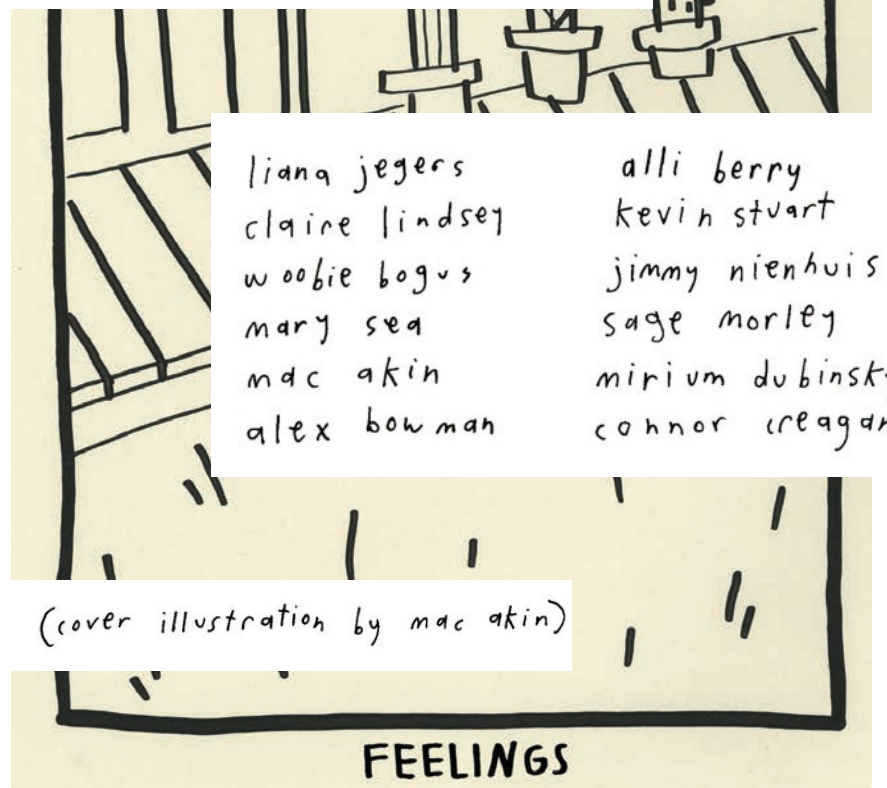 liana jegers
claire lindsey
woobie bogus
mary sea
mac akin
alex bowman
alli berry
kevin stuart
jimmy nienhuis
sage morley
mirium
connor
(cover illustration by mac akin)
FEELINGS